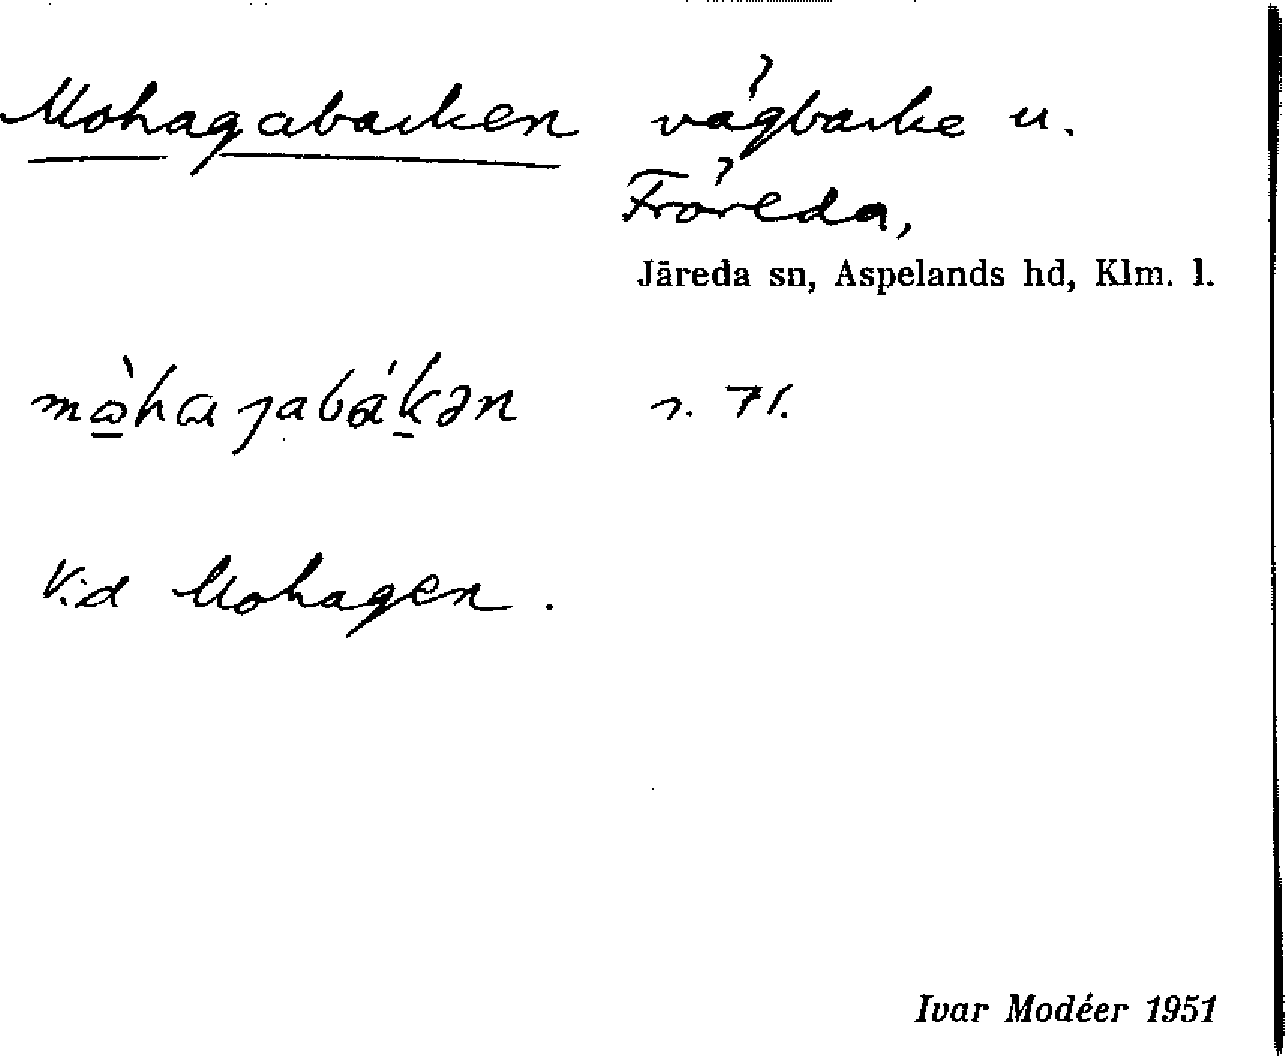 Mohagabacken vägbacke u.
Fröreda,
Järeda sn, Aspelands hd, Klm. l.
n. 71.
Vid Mohagen.
Ivar Modéer 1951